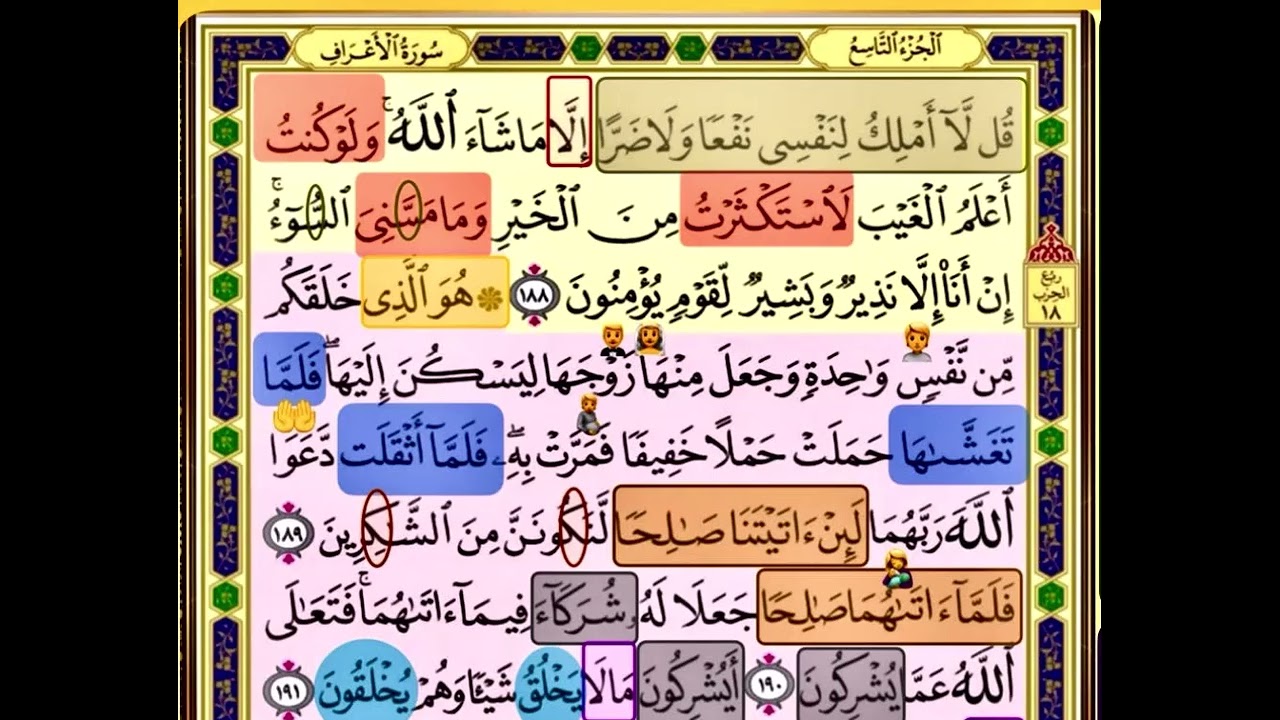 الجُزْءُ التَّاسِعُ
سُورَةُ الأَعْرَافِ
قُل لَّآ أَمْلِكُ لِنَفْسِى نَفْعًا وَلَا ضَرًّا إِلَّا مَا شَآءَ ٱللَّهُ ۚ وَلَوْ كُنتُ
أَعْلَمُ ٱلْغَيْبَ لَٱسْتَكْثَرْتُ مِنَ ٱلْخَيْرِ وَمَا مَسَّنِىَ ٱلسُّوٓءُ ۚ
إِنْ أَنَا۠ إِلَّا نَذِيرٌ وَبَشِيرٌ لِّقَوْمٍ يُؤْمِنُونَ ١٨٨ ۞ هُوَ ٱلَّذِى خَلَقَكُم
ربع
الحزب
١٨
مِّن نَّفْسٍ وَٰحِدَةٍ وَجَعَلَ مِنْهَا زَوْجَهَا لِيَسْكُنَ إِلَيْهَا ۖ فَلَمَّا
تَغَشَّىٰهَا حَمَلَتْ حَمْلًا خَفِيفًا فَمَرَّتْ بِهِۦ ۖ فَلَمَّآ أَثْقَلَت دَّعَوَا
ٱللَّهَ رَبَّهُمَا لَئِنْ ءَاتَيْتَنَا صَٰلِحًا لَّنَكُونَنَّ مِنَ ٱلشَّٰكِرِينَ ١٨٩
فَلَمَّآ ءَاتَىٰهُمَا صَٰلِحًا جَعَلَا لَهُۥ شُرَكَآءَ فِيمَآ ءَاتَىٰهُمَا ۚ فَتَعَٰلَى
ٱللَّهُ عَمَّا يُشْرِكُونَ ١٩٠ أَيُشْرِكُونَ مَا لَا يَخْلُقُ شَيْـًٔا وَهُمْ يُخْلَقُونَ ١٩١